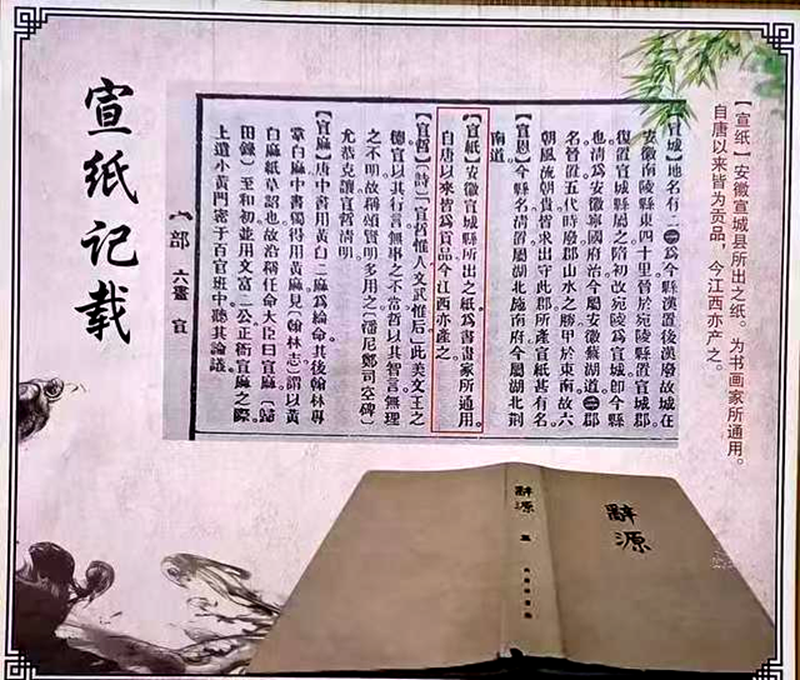 宣纸记载
【宣纸】安徽宣城县所出之纸。为书画家所通用。
自唐以来皆为贡品，今江西亦产之。
【宣城】地名有二㊀爲今縣漢置後漢廢故城在
安徽南陵縣東四十里晉於宛陵縣置宣城郡。
復置宣城縣屬之隋初改宛陵爲宣城卽今縣
也淸爲安徽寧國府治今屬安徽蕪湖道㊁郡
名晉置五代時廢郡山水之勝甲於東南故六
朝風流朝貴皆求出守此郡所產宣紙甚有名。
【宣恩】今縣名淸置屬湖北施南府今屬湖北荆
南道。
【宣紙】安徽宣城縣所出之紙爲書畫家所通用。
自唐以來皆爲貢品今江西亦產之
【宣哲】〔詩〕「宣哲惟人文武惟后」此美文王之
德宣以其行言無事之不當哲以其智言無理
之不明故稱頌賢明多用之〔潘尼鄭司空碑〕
尤恭克讓宣哲淸明
【宣麻】唐中書用黃白二麻爲綸命其後翰林專
掌白麻中書獨得用黃麻見〔翰林志〕謂以黃
白麻紙草詔也故治稱任命大臣曰宣麻〔歸
田錄〕至和初並用文富二公正衙宣麻之際。
上遣小黃門密于百官班中聽其論議。
宀部 六畫 宣
辭源
辭源